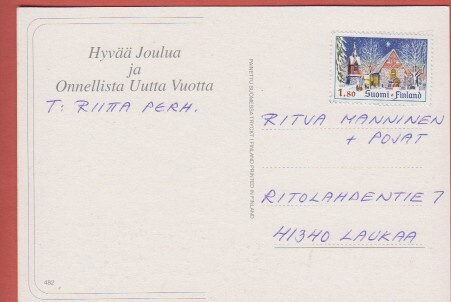 Hyvää Joulua
ja
Onnellista Uutta Vuotta
T: RIITTA PERH.
482
PAINETTU SUOMESSA
1,80 Suomi-Finland
RITVA MANNINEN
+ POJAT
RITOLAHDENTIE 7
41340 LAUKAA